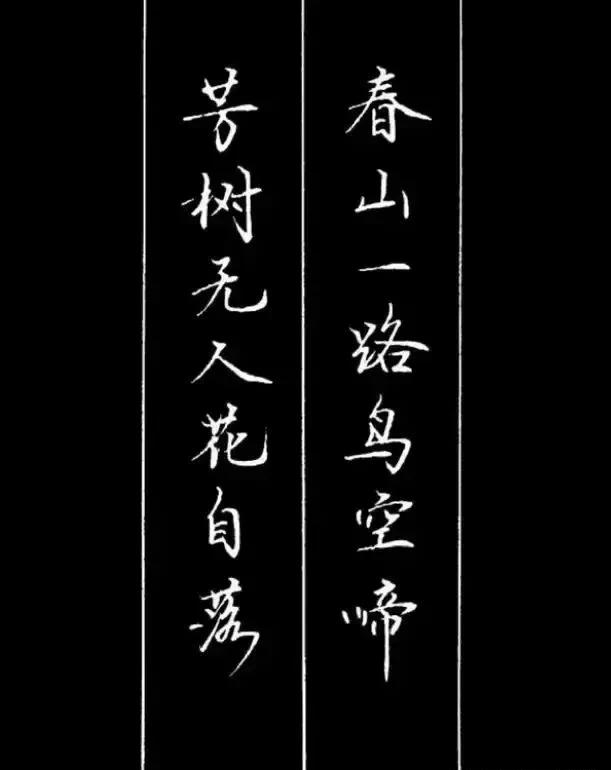 芳树无人花自落
春山一路鸟空啼